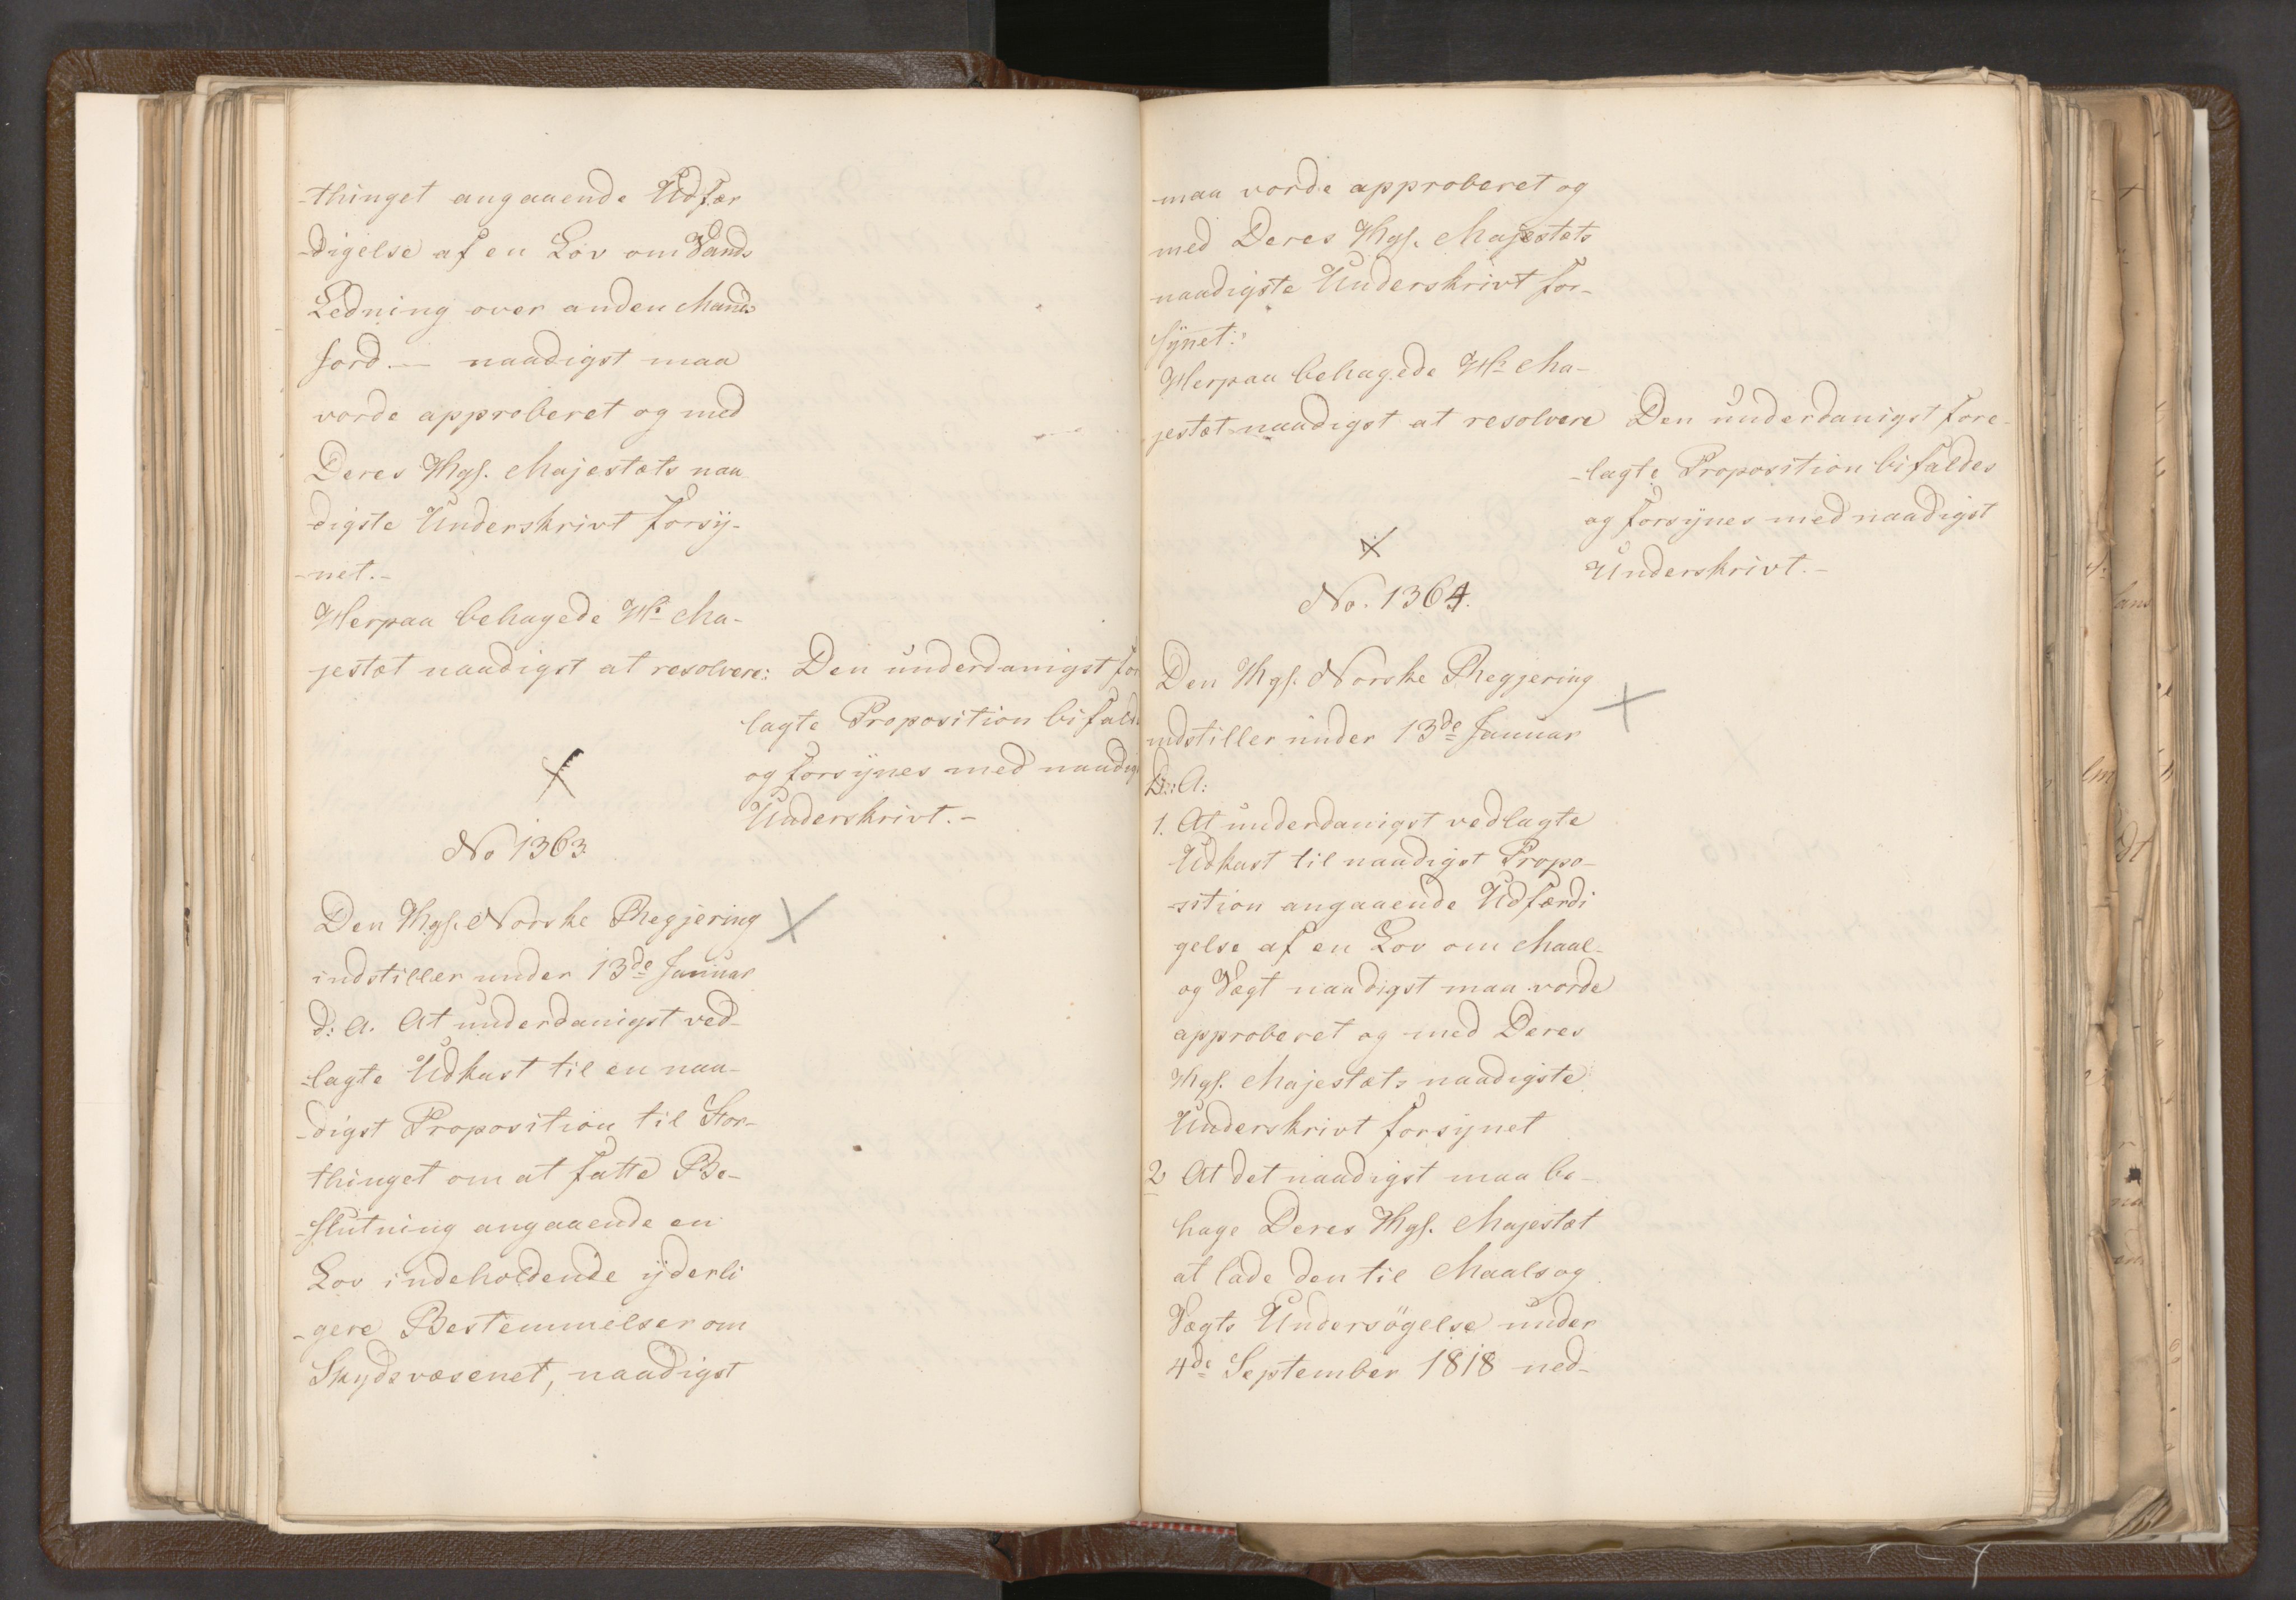 -thinget angaaende Udfær
-digelse af en Lov om Vands
Ledning over anden Mands
Jord — naadigst maa
vorde approberet og med
Deres Kgs. Majestæts naa
digste Underskrivt forsÿ-
-net.-
Herpaa behagede Hs Ma-
jestæt naadigst at resolvere: Den underdanigst for
lagte Proposition bifald
og forsÿnes med naadig
Underskrivt.-
No 1363
Den Kgs. Norske Regjering
indstiller under 13de Januar
d: A. At underdanigst ved-
-lagte Udkast til en naa-
-digst Proposition til Stor-
thinget om at fatte Be-
-slutning angaaende en
Lov indeholdende ÿderli
-gere Bestemmelser om
Skydsvæsenet, naadigst
maa vorde approberet og
med Deres Kgs. Majestæts
naadigste Underskrivt for-
sÿnet:
Herpaa behagede Hs Ma-
jestæt naadigst at resolvere Den underdanigst fore-
-lagte Proposition bifaldes
og forsÿnes med naadigst
Underskrivt.-
No. 1364.
Den Kgs. Norske Regjering
indstiller under 13de Januar
D:: A:
1. At underdanigst vedlagte
Udkast til naadigst Propo-
-sition angaaende Udfærdi
gelse af en Lov om Maal-
og Vægt naadigst maa vorde
approberet og med Deres
Kgs. Majestæts naadigste
Underskrivt forsynet
2 At det naadigst maa be-
hage Deres Kgs. Majestæt
at lade den til Maals og
Vægts Undersögelse under
4de September 1818 ned-